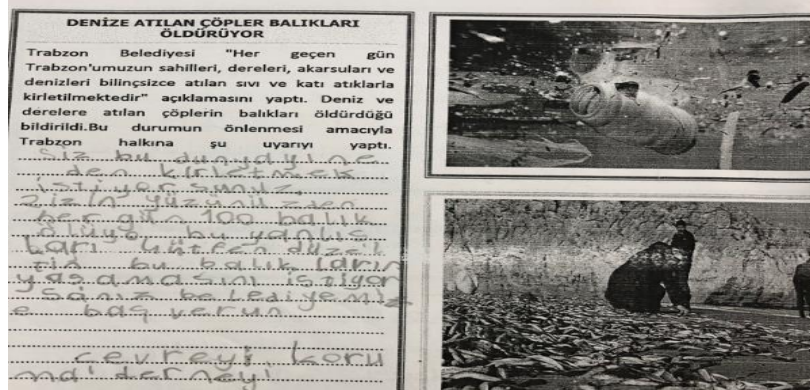 DENİZE ATILAN ÇÖPLER BALIKLARI
ÖLDÜRÜYOR
Trabzon Belediyesi "Her geçen gün
Trabzon'umuzun sahilleri, dereleri, akarsuları ve
denizleri bilinçsizce atılan sıvı ve katı atıklarla
kirletilmektedir" açıklamasını yaptı. Deniz ve
derelere atılan çöplerin balıkları öldürdüğü
bildirildi.Bu durumun önlenmesi amacıyla
Trabzon halkına şu uyarıyı yaptı.
Siz bu dünyayı ne
den kirletmek
istiyorsunuz.
Sizin yüzünüzden
her gün 100 balık
ölüyo bu yanlış
ları lütfen düzel
tin bu balıkların
yaşamasını istiyor
sanız belediyemiz
e baş verun
çevreyi koru
ma derneyi